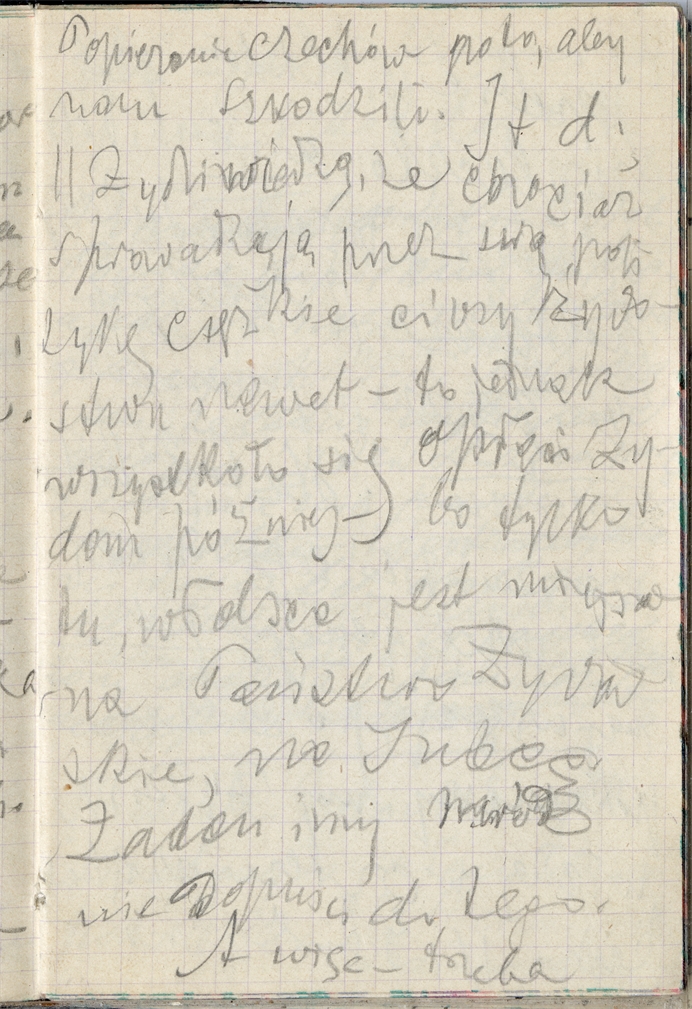 Popieranie Czechów po to, aby
nam szkodzili. It d.
|| Żydzi wiedzą, że chociaż
sprowadzają przez swą poli
tykę ciężkie ciosy Żydo-
stwu nawet – to jednak
wszystko to się opłaci Ży-
dom później – bo tylko
tu, w Polsce jest miejsce
na Państwo Żydow
skie, na Judeę.
Żaden inny naród
nie dopuści do tego.
A więc – trzeba